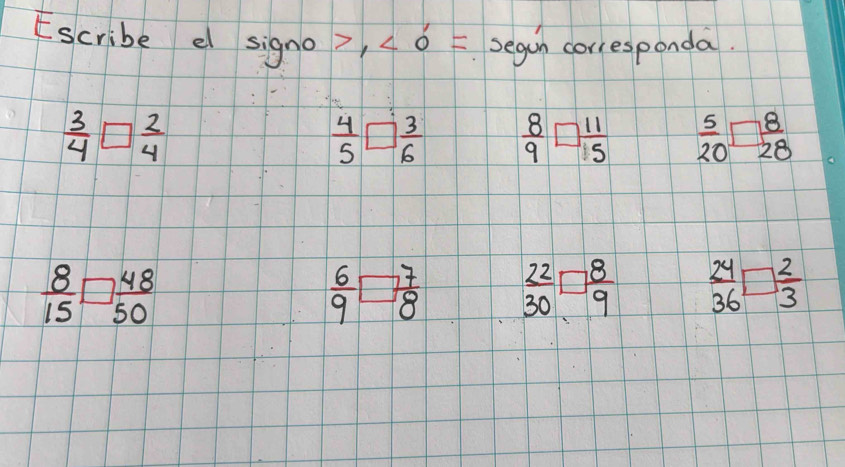 Escribe el signo >, < ó = según corresponda.
3/4 □ 2/4 4/5 □ 3/6 8/9 □ 11/15 5/20 □ 8/28
8/15 □ 48/50 6/9 □ 7/8 22/30 □ 8/9 24/36 □ 2/3